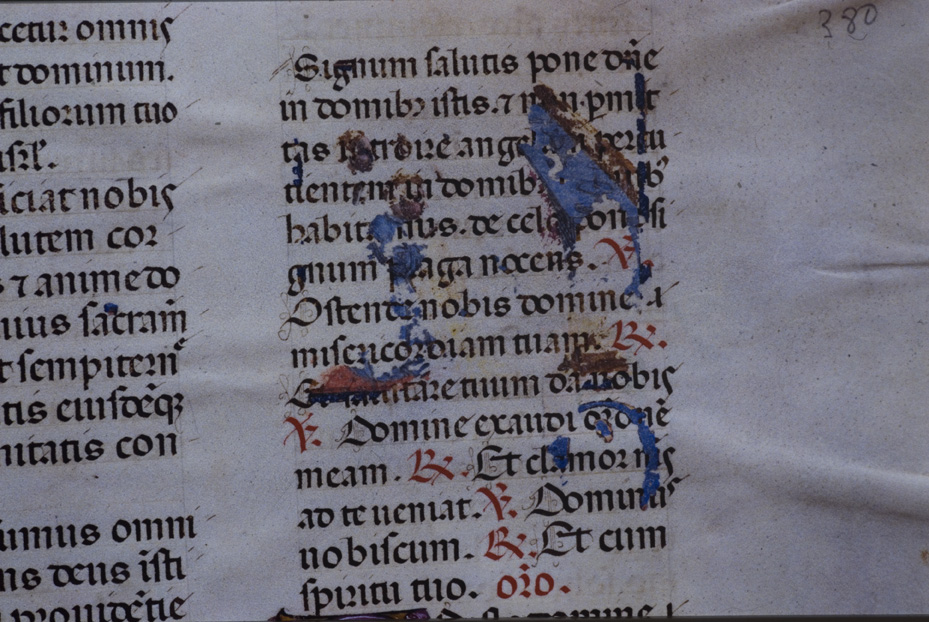 380
cetur omnis
t dominum.
filiorum tuo
isrl̃.
iciat nobis
lutem cor
s ⁊ anime do
uius sacram̃
t sempitern̄
tis eiusdēq̃
nitatis con
umus omni
ns deus isti
prouidētie
Signum salutis pone dñe
in domibꝫ istis. ⁊ non pmit
tas introire angelum percu
tientem in domibꝫ
habitamus. de celo pone si
gnum plaga nocens. ℣.
Ostende nobis domine
misericordiam tuam. ℟.
Et salutare tuum da nobis
℣. Domine exaudi or̃onē
meam. ℟. Et clamor ms
ad te ueniat. ℣. Dominus
nobiscum. ℟. Et cum
spiritu tuo. or̃o.